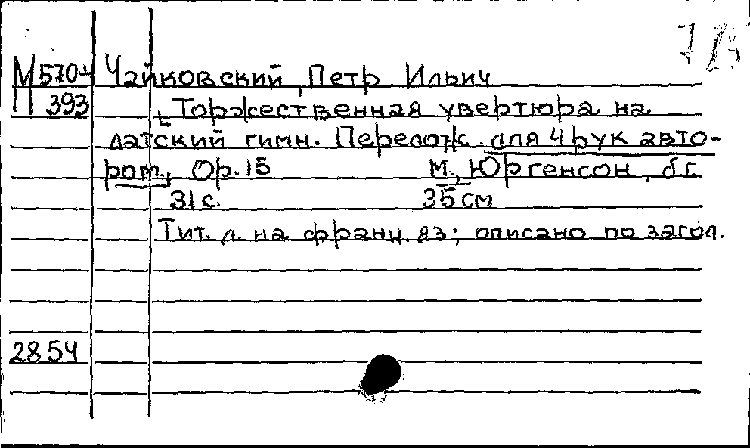 М5704 Чайковский, Петр Ильич
П 393 [Торжественная увертюра на
датский гимн. Перелож. для 4 рук авто-
ром, Ор. 15 М., Юргенсон, б.г.
31 с. 35 см
Тит. л. на франц. яз; описано по загол.
2854